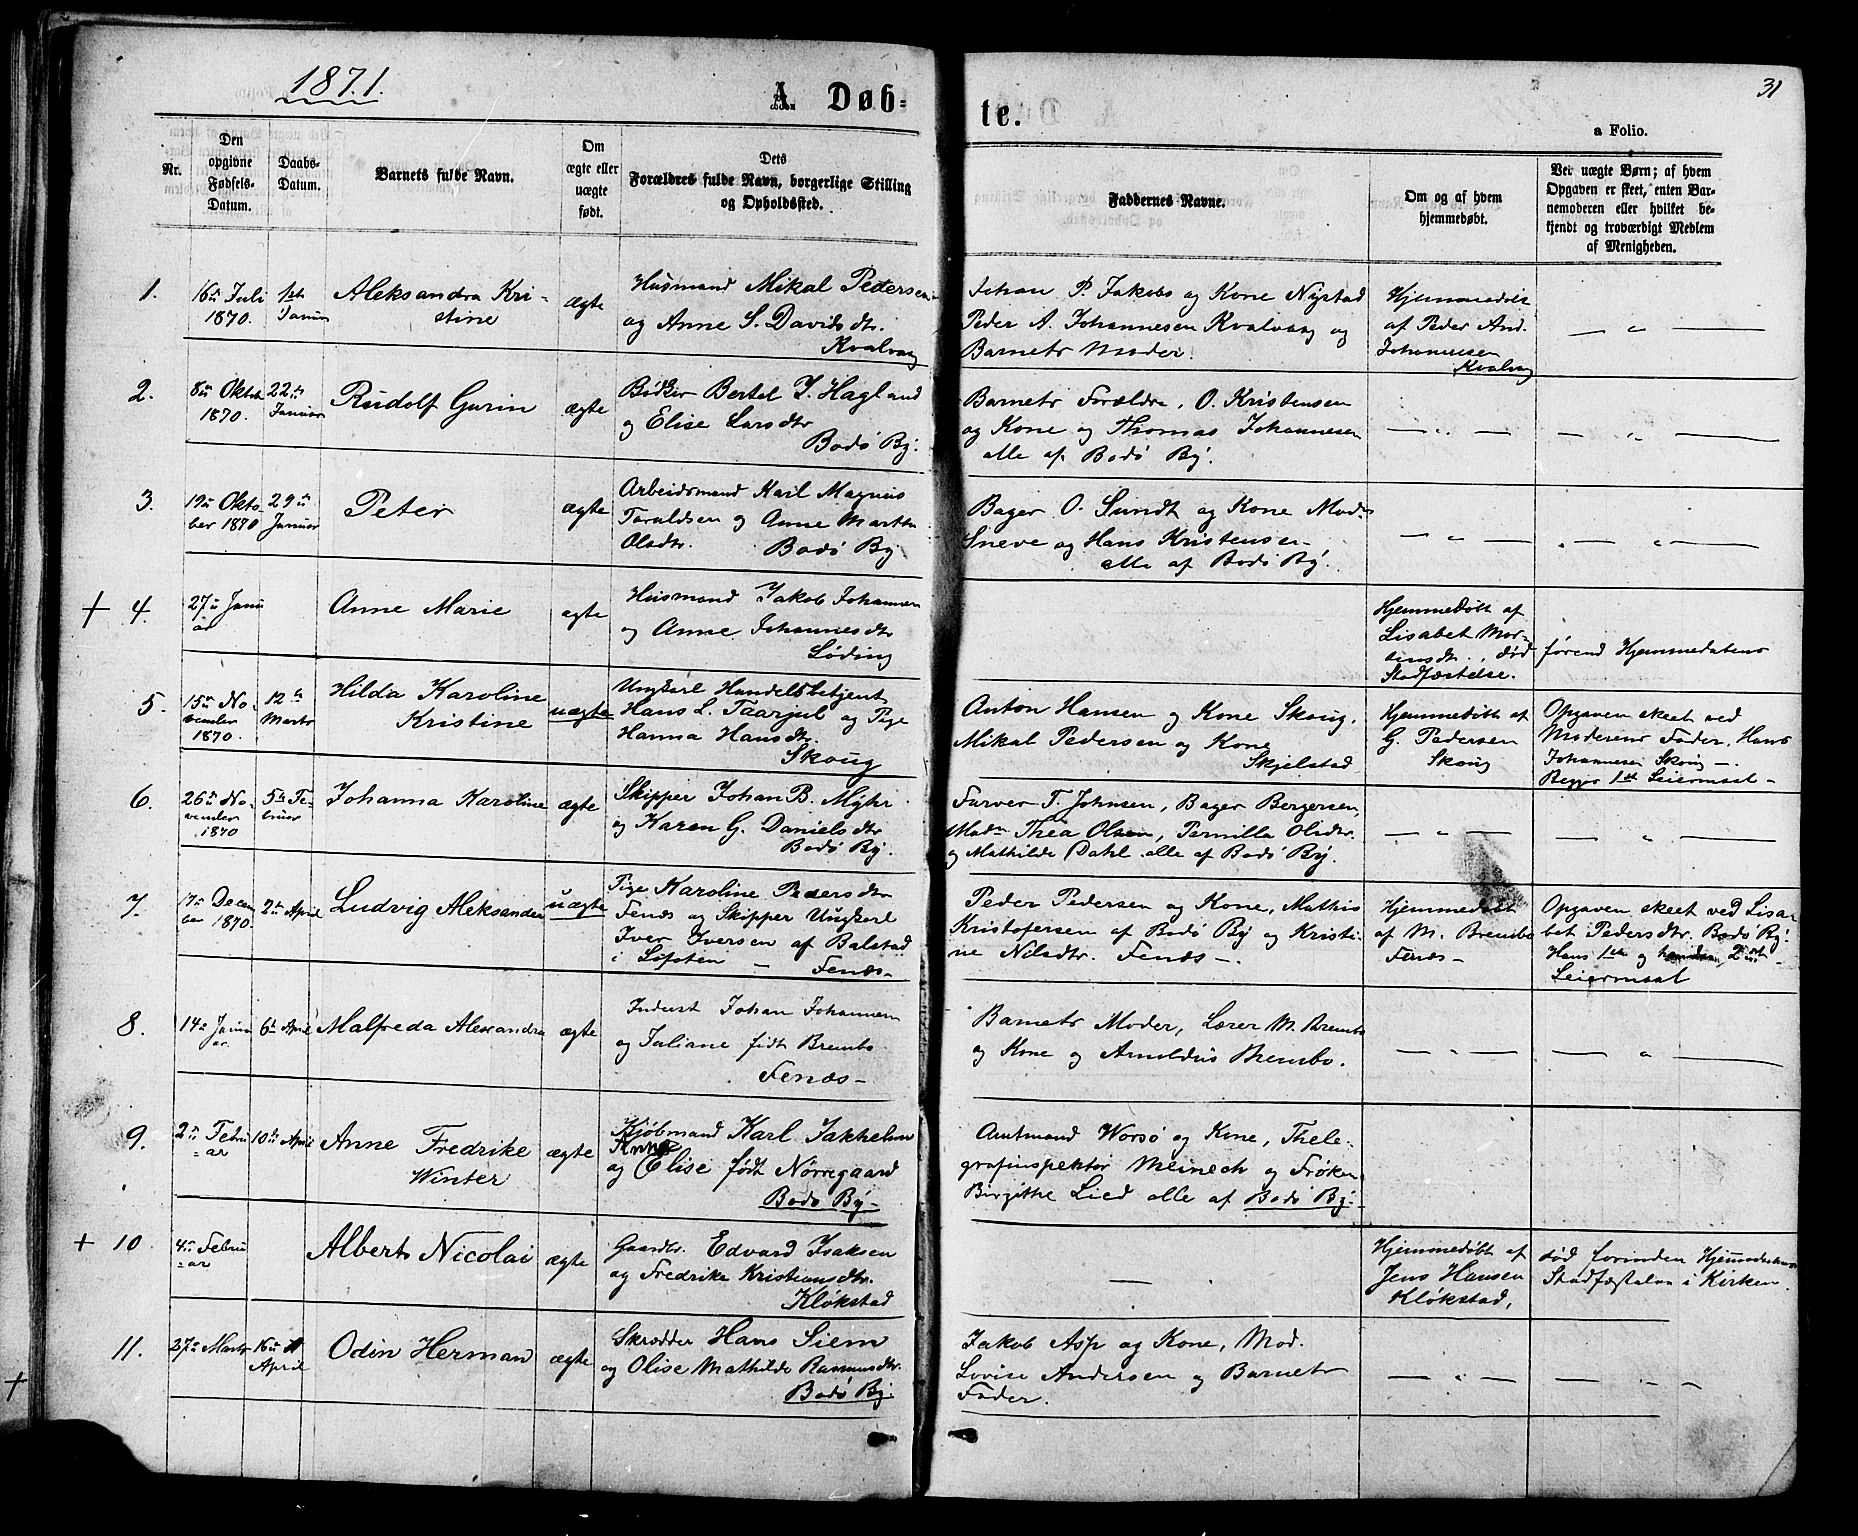 1871.
A. Døb-
te.
31
a Folio.
Nr.
Den
opgivne
Fødsels-
Datum.
Daabs-
Datum.
Barnets fulde Navn.
Om
ægte eller
uægte
født.
Dets
Forældres fulde Navn, borgerlige Stilling
og Opholdssted.
Faddernes Navne.
Om og af hvem
hjemmedøbt.
Ved uægte Børn; af hvem
Opgaven er skeet, enten Bar-
nemoderen eller hvilket be-
kjendt og troværdigt Medlem
af Menigheden.
1.
16de Juli
1870.
1ste
Januar
Aleksandra Kri-
stine
ægte
Husmand Mikal Pedersen
og Anne S. Davidsdtr.
Kvalvaag
Johan P. Jakobs og Kone Nystad
Peder A. Johannesen Kvalvaag og
Barnets Moder.
Hjemmedøbt
af Peder And.
Johannesen
Kvalvag
— " —
2.
8de Oktob
1870.
22de
Januar
Rudolf Gurin
ægte
Bødker Bertel J. Hagland
og Elise Larsdtr
Bodø By.
Barnets Forældre, O. Kristensen
og Kone og Thomas Johannesen
alle af Bodø By.
— " —
— " —
3.
19de Okto-
ber 1870
29de
Januar
Peter
ægte
Arbeidsmand Karl Magnus
Taraldsen og Anne Martha
Olsdtr. Bodø By
Bager O. Sundt og Kone Mad.
Sneve og Hans Kristensen
alle af Bodø By.
— " —
— " —
+ 4.
27de Janu
ar
Anne Marie
ægte
Husmand Jakob Johannesen
og Anne Johannesdtr
Løding
Hjemmedøbt af
Lisabet Mor-
tensdtr., død
Stadfæstelse.
førend Hjemmedaabens
5.
15de No-
vember
1870.
12te
Marts
Hilda Karoline
Kristine
uægte
Ungkarl Handelsbetjent
Hans L. Taarjul og Pige
Hanna Hansdtr.
Skoug
Anton Hansen og Kone Skoug,
Mikal Pedersen og Kone
Skjelstad
Hjemmedøbt af
G. Pedersen
Skoug
Opgaven skeet ved
Moderens Fader, Hans
Johannesen Skoug —.
Begges 1ste Leiermaal -
6.
26de No-
vember
1870
5te Fe-
bruar
Johanna Karoline
ægte
Skipper Johan B. Myhr
og Karen G. Danielsdtr
Bodø By.
Farver T. Johnsen, Bager Bergersen,
Madm Thea Olsen, Pernilla Olsdtr.
og Mathilde Dahl alle af Bodø By.
— " —
— " —
7.
17de Decem
ber 1870.
2den April
Ludvig Aleksander
uægte
Pige Karoline Pedersdtr
Fenæs og Skipper Ungkarl
Iver Iversen af Balstad
i Lofoten — Fenæs-
Peder Pedersen og Kone, Mathis
Kristofersen af Bodø By og Kristi-
ne Nilsdtr. Fenæs —.
Hjemmedøbt
af M. Brembo
Fenæs -
Opgaven skeet ved Lisa-
bet Pedersdtr. Bodø By.
Hans 1ste og hendes 2det
Leiermaal
8.
14de Janu
ar.
6te April
Malfreda Alexandra
ægte
Inderst Johan Johannesen
og Juliane født Brembo
Fenæs —
Barnets Moder, Lærer M. Brembo
og Kone og Arnoldus Brembo.
— " —
— " —
9.
2den Febru
-ar
10de April
Anne Fredrike
Winter
ægte
Kjøbmand Karl Jakhelln
Kone
og Elise født Nørregaard
Bodø By-
Amtmand Worsø og Kone, Thele-
grafinspektør Meinech og Frøken
Birgithe Lied alle af Bodø By.-
+ 10.
4de Febru
-ar
Alberts Nicolai
ægte
Gaardbr. Edvard Isaksen
og Fredrike Kristiansdtr.
Kløkstad
—
Hjemmedøbt af
Jens Hansen
Kløkstad,
død forinden Hjemmedaabens
Stadfæstelse i Kirken.
11.
27de Marts
16de
April
Odin Herman
ægte
Skrædder Hans Siem
og Olise Mathilde Rasmusdtr.
Bodø By.
Jakob Asp og Kone, Mad.
Lovise Andersen og Barnets
Fader.
— " —
— " —
+